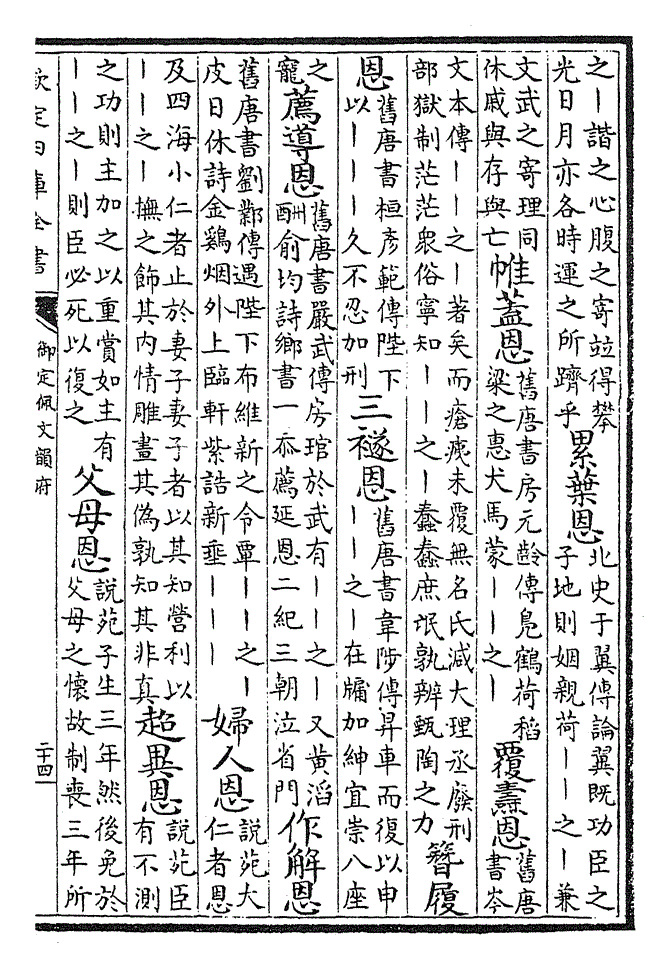 之｜諧之心腹之寄竝得攀
光日月亦各時運之所躋乎
累葉恩
北史于翼傳論翼既功臣之
子地則姻親荷｜｜之｜兼
文武之寄理同
休戚與存與亡
帷蓋恩
舊唐書房元齡傳鳧鶴荷稻
粱之惠犬馬蒙｜｜之｜
覆燾恩
舊唐
書岑
文本傳｜｜之｜著矣而瘡痍未覆無名氏減大理丞廢刑
部獄制茫茫衆俗寧知｜｜之｜蠢蠢庶氓孰辨甄陶之力
簪履
恩
舊唐書桓彥範傳陛下
以｜｜｜久不忍加刑
三襚恩
舊唐書韋陟傳昇車而復以申
｜｜之｜在牖加紳宜崇八座
之
寵
薦導恩
舊唐書嚴武傳房琯於武有｜｜之｜又黃滔
酬俞均詩鄉書一忝薦延恩二紀三朝泣省門
作解恩
舊唐書劉鄴傳遇陛下布維新之令覃｜｜之｜
皮日休詩金鷄烟外上臨軒紫誥新垂｜｜｜
婦人恩
說苑大
仁者恩
及四海小仁者止於妻子妻子者以其知營利以
｜｜之｜撫之飾其內情雕畫其偽孰知其非真
超異恩
說苑臣
有不測
之功則主加之以重賞如主有
｜｜之｜則臣必死以復之
父母恩
說苑子生三年然後免於
父母之懷故制喪三年所
欽定四庫全書
御定佩文韻府
二十四